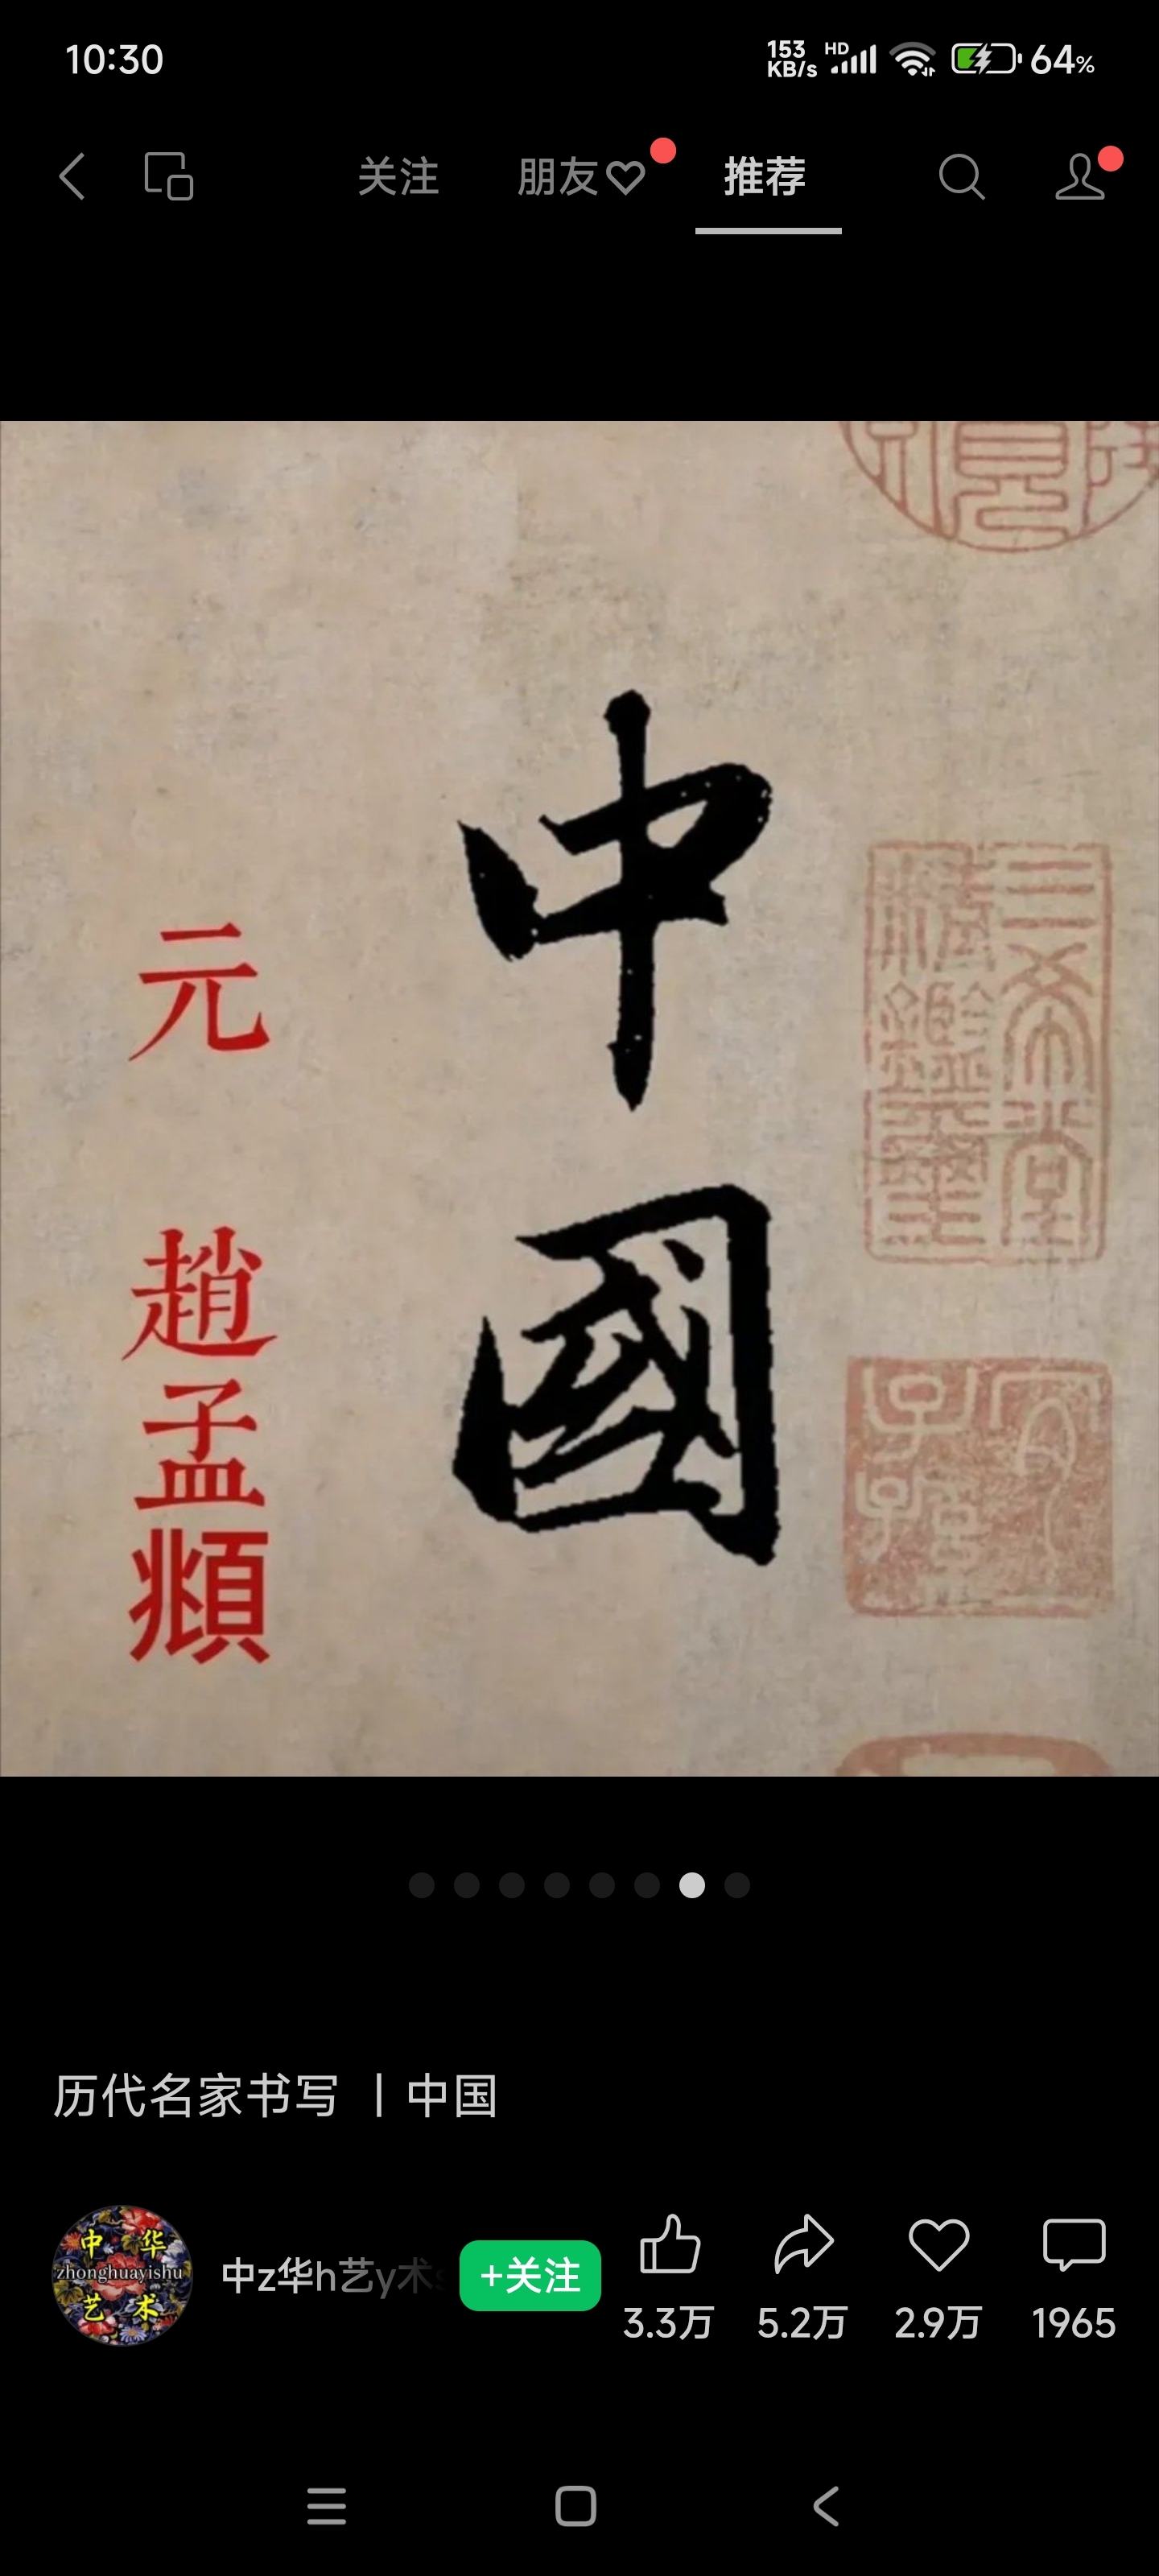 10:30
153 KB/s HD 64%
关注 朋友 推荐
中國
元 趙孟頫
三希堂精鑑璽
宜子孫
历代名家书写 丨中国
中华
zhonghuayishu
艺术
中z华h艺y术s
+关注
3.3万 5.2万 2.9万 1965